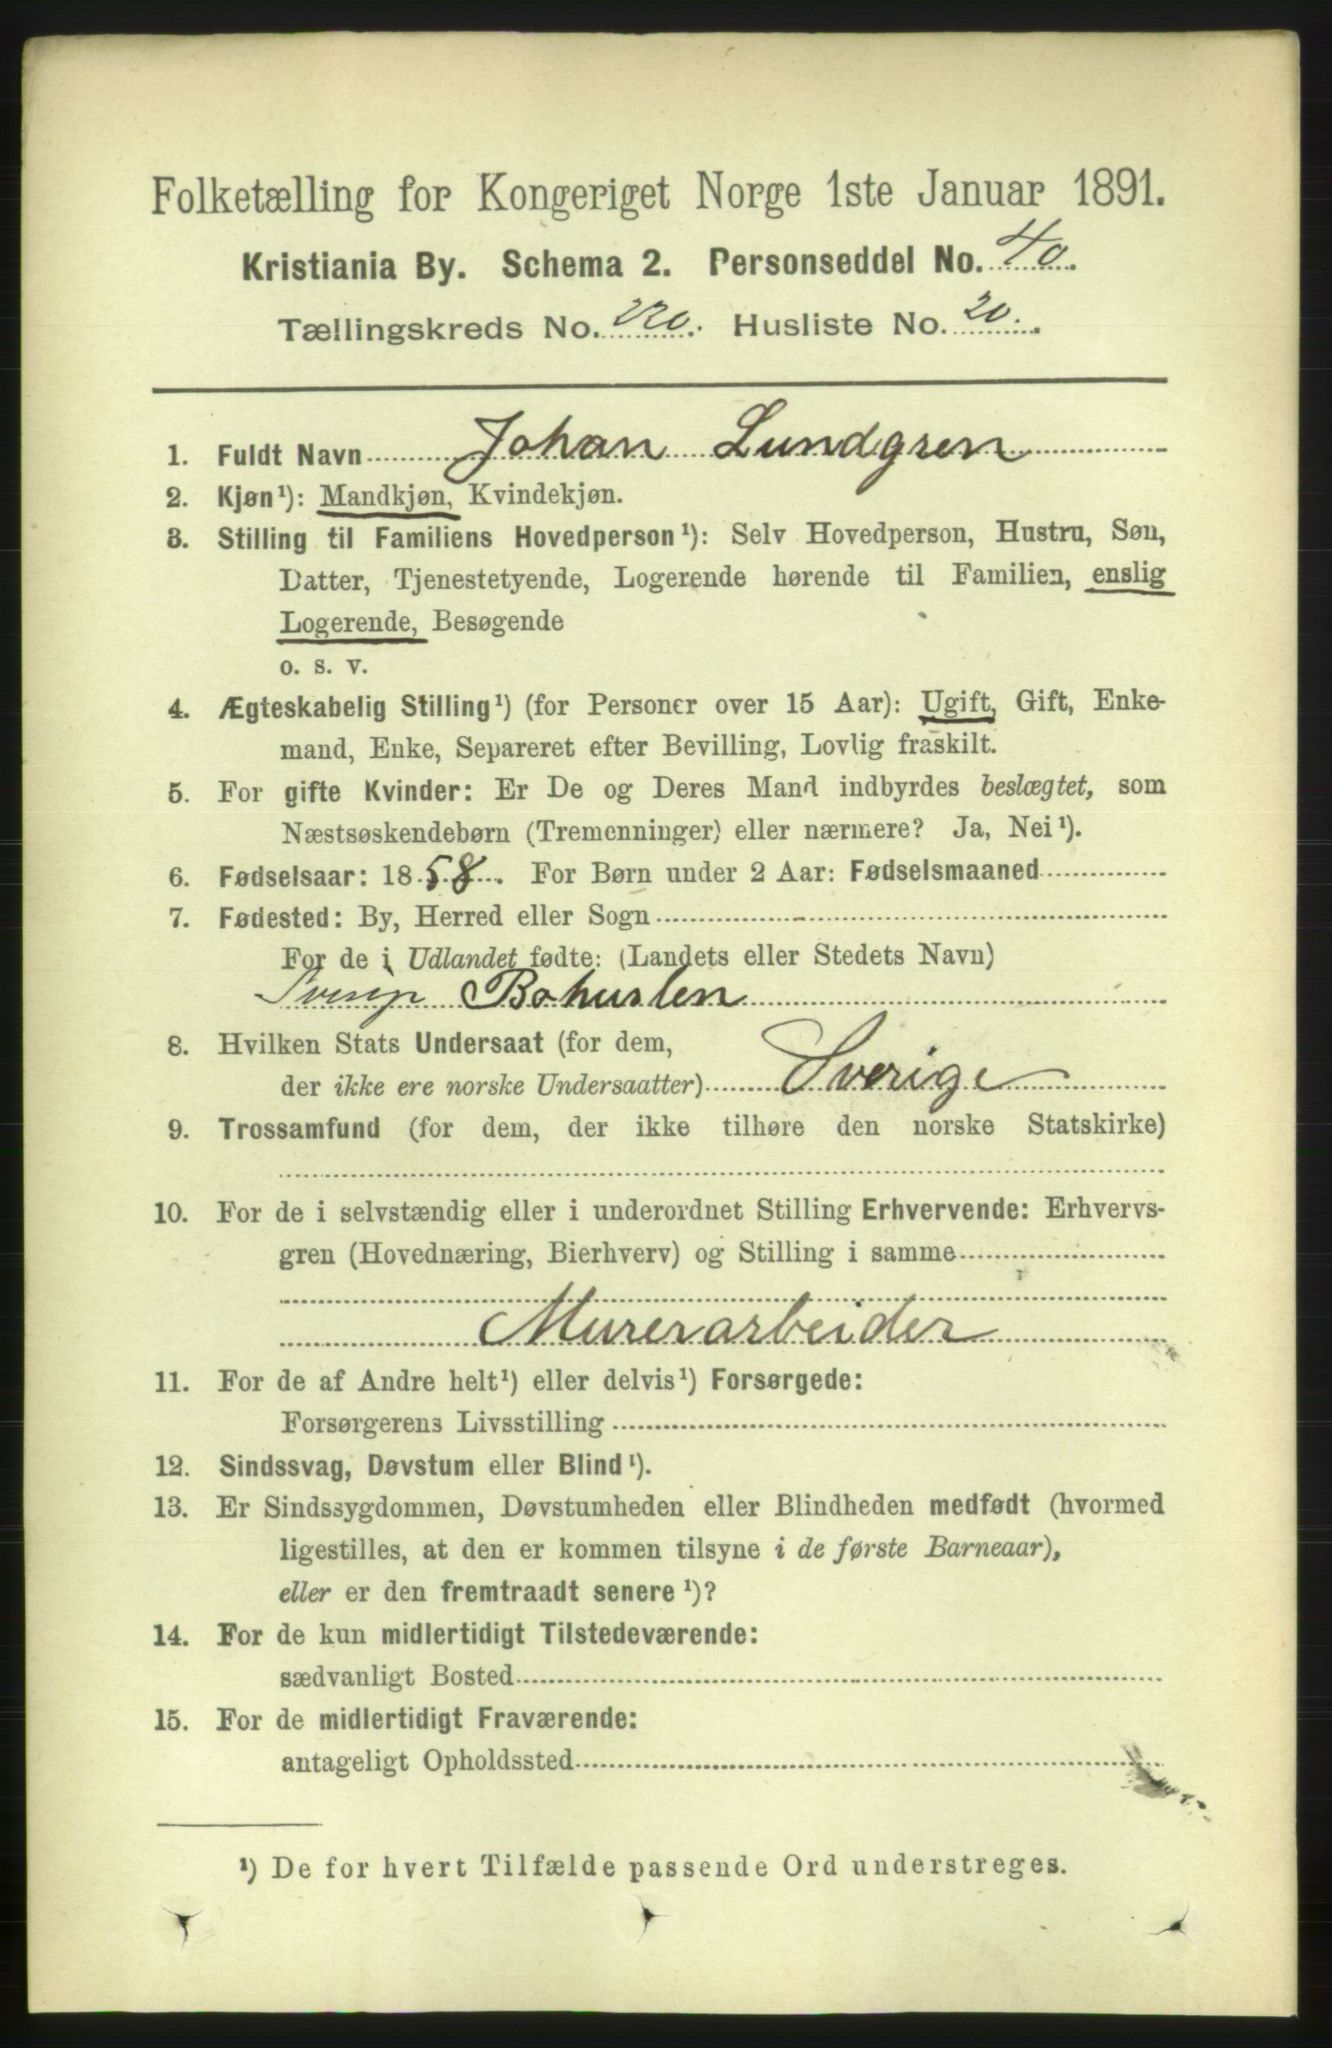 Folketælling for Kongeriget Norge 1ste Januar 1891.
Kristiania By. Schema 2. Personseddel No. 40.
Tællingskreds No. 220. Husliste No. 20.
1. Fuldt Navn Johan Lundgren
2. Kjøn¹): Mandkjøn, Kvindekjøn.
3. Stilling til Familiens Hovedperson¹): Selv Hovedperson, Hustru, Søn,
Datter, Tjenestetyende, Logerende hørende til Familien, enslig
Logerende, Besøgende
o. s. v.
4. Ægteskabelig Stilling¹) (for Personer over 15 Aar): Ugift, Gift, Enke-
mand, Enke, Separeret efter Bevilling, Lovlig fraskilt.
5. For gifte Kvinder: Er De og Deres Mand indbyrdes beslægtet, som
Næstsøskendebørn (Tremenninger) eller nærmere? Ja, Nei¹).
6. Fødselsaar: 1858. For Børn under 2 Aar: Fødselsmaaned
7. Fødested: By, Herred eller Sogn
For de i Udlandet fødte: (Landets eller Stedets Navn)
Bohuslen
8. Hvilken Stats Undersaat (for dem,
der ikke ere norske Undersaatter) Sverige
9. Trossamfund (for dem, der ikke tilhøre den norske Statskirke)
10. For de i selvstændig eller i underordnet Stilling Erhvervende: Erhvervs-
gren (Hovednæring, Bierhverv) og Stilling i samme
Murerarbeider
11. For de af Andre helt¹) eller delvis¹) Forsørgede:
Forsørgerens Livsstilling
12. Sindssvag, Døvstum eller Blind¹).
13. Er Sindssygdommen, Døvstumheden eller Blindheden medfødt (hvormed
ligestilles, at den er kommen tilsyne i de første Barneaar),
eller er den fremtraadt senere¹)?
14. For de kun midlertidigt Tilstedeværende:
sædvanligt Bosted
15. For de midlertidigt Fraværende:
antageligt Opholdssted
¹) De for hvert Tilfælde passende Ord understreges.